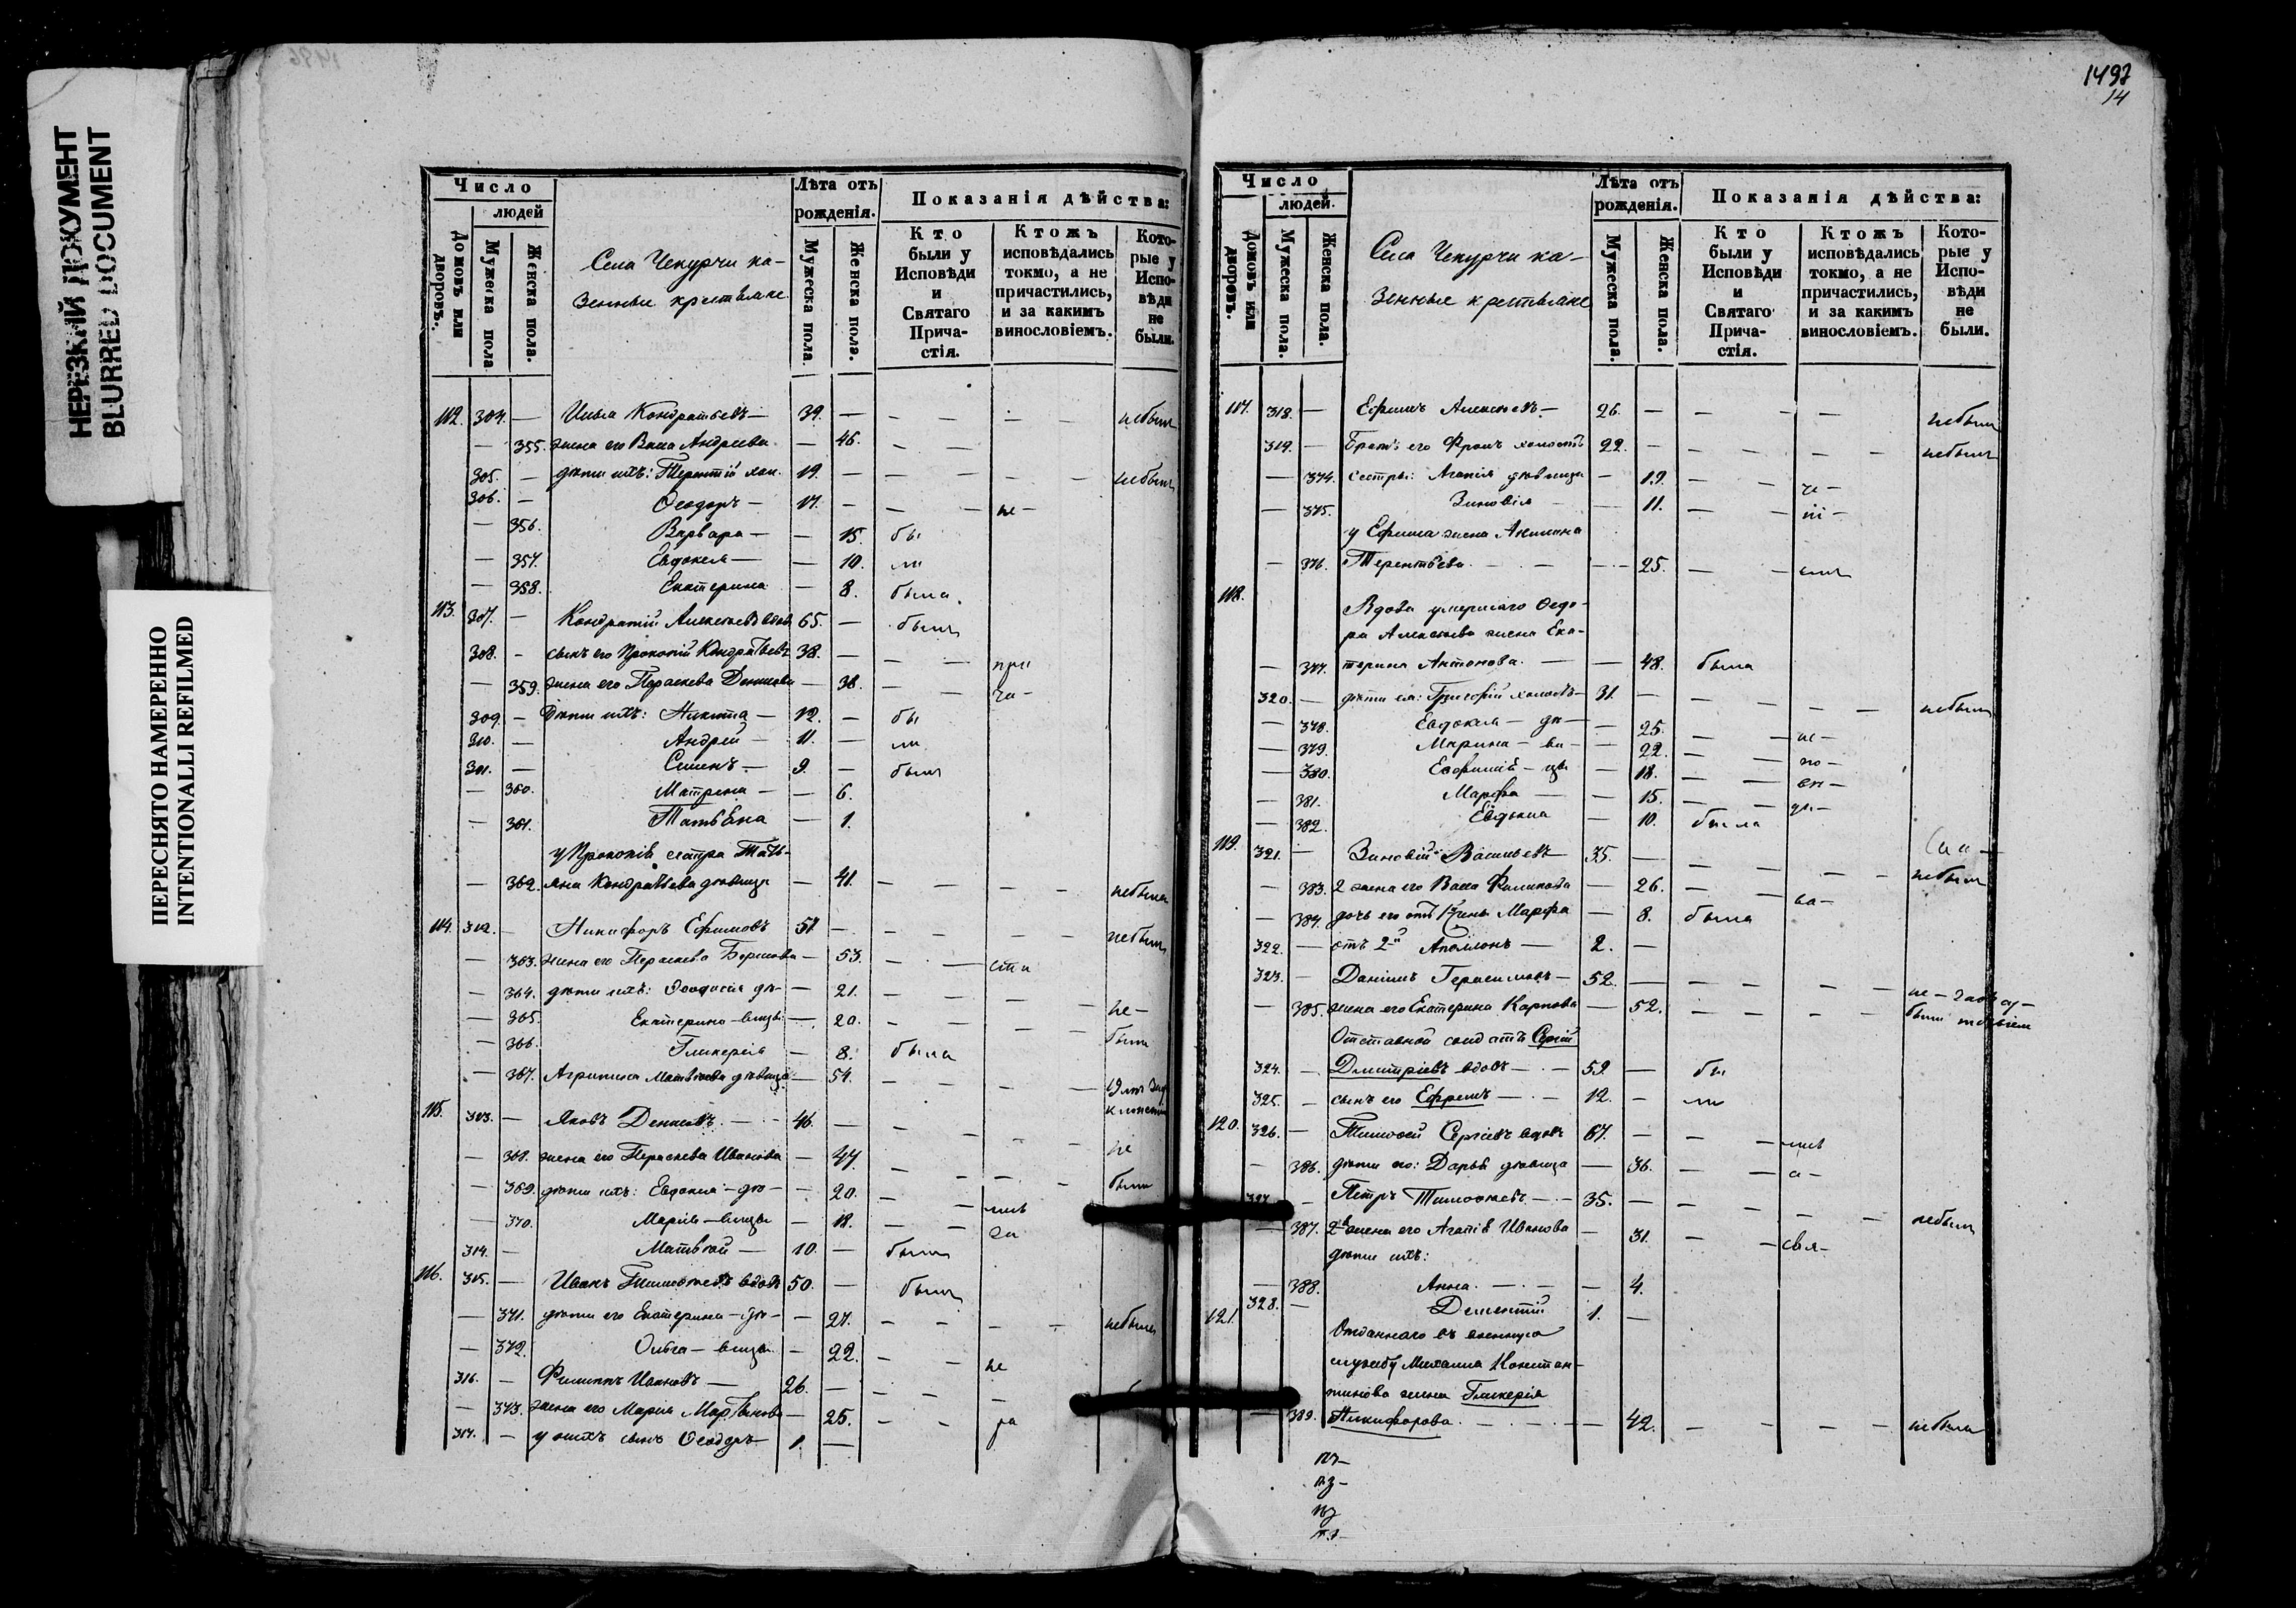 НЕРЕЗКИЙ ДОКУМЕНТ
BLURRED DOCUMENT
ПЕРЕСНЯТО НАМЕРЕННО
INTENTIONALLI REFILMED
Число
людей
Домовъ или дворовъ.
Мужеска пола
Женска пола.
Села Чекурчи ка-
зенные крестьяне
Лѣта отъ рожденія.
Мужеска пола.
Женска пола.
Показанія дѣйства:
Кто были у Исповѣди и Святаго Прича-стія.
Ктожъ исповѣдались токмо, а не причастились, и за какимъ винословіемъ.
Кото-рые у Испо-вѣди не были.
112. 304. — Илья Кондратьевъ — 39. — небылъ
— 355. жена его Васса Андреева — 46.
305. — дѣти ихъ: Терентій хол. 19. — небылъ
306. — Ѳеодоръ — 17. — не —
— 356. Варвара — 15. бы
— 357. Евдокея — 10. ли
— 358. Екатерина — 8. была
113. 307. — Кондратій Алексѣевъ вдов. 65. — былъ
308. — сынъ его Прокопій Кондратьевъ 38. — при
— 359. жена его Параскева Денисова — 38. ча-
309. — Дѣти ихъ: Никита — 12. — бы
310. — Андрей — 11. — ли
311. — Семенъ — 9. — былъ
— 360. Матрена — 6.
— 361. Татьяна — 1.
у Прокопія сестра Тать-
— 362. яна Кондратьева дѣвица — 41. небыла
114. 312. — Никифоръ Ефимовъ 51. — небылъ
— 363. жена его Параскева Борисова — 53.
— 364. дѣти ихъ: Ѳеодосія дѣ- — 21. не —
— 365. Екатерина — вицы — 20. были
— 366. Гликерія — 8. была
— 367. Агрипина Матвѣева дѣвица — 54.
115. 313. — Яковъ Денисовъ — 46. — не
— 368. жена его Параскева Иванова — 47. были
— 369. дѣти ихъ: Евдокія — дѣ- — 20.
— 370. Марія — вицы — 18. за
314. — Матвѣй — 10. — былъ
116. 315. — Иванъ Тимоѳеевъ вдовъ 50. — былъ
— 371. дѣти его Екатерина — дѣ- — 27. небыли
— 372. Ольга — вицы — 22. не
316. — Филиппъ Ивановъ — 26. —
— 373. жена его Марія Мартынова — 25. ра
317. — у нихъ сынъ Ѳеодоръ 1. —
1497
14
Число
людей.
Домовъ или дворовъ.
Мужеска пола.
Женска пола.
Села Чекурчи ка-
зенные крестьяне
Лѣта отъ рожденія.
Мужеска пола.
Женска пола.
Показанія дѣйства:
Кто были у Исповѣди и Святаго Прича-стія.
Ктожъ исповѣдались токмо, а не причастились, и за какимъ винословіемъ.
Кото-рые у Испо-вѣди не были.
117. 318. — Ефимъ Алексѣевъ — 26. — небылъ
319. — Братъ его Фролъ холостъ 22. — небылъ
— 374. сестры: Агапія дѣвица — 19.
— 375. Зиновія — 11.
у Ефима жена Акилина
— 376. Терентьева — 25.
118. Вдова умершаго Ѳедо-
ра Алексѣева жена Ека-
— 377. терина Антонова — 48. была
320. — дѣти ея: Григорій холостъ — 31. — небылъ
— 378. Евдокея — дѣ — 25. не —
— 379. Марина — ви- — 22. по —
— 380. Евфимія — цы — 18.
— 381. Марфа — 15.
— 382. Евдокиа — 10. была
119. 321. — Зиновій Васильевъ — 35. — небылъ
— 383. 2 жена его Васса Филипова — 26.
— 384. дочь его отъ 1й жены Марфа — 8. была
322. — отъ 2й Аполлонъ — 2. —
323. — Даніилъ Герасимовъ — 52. — не —
— 385. жена его Екатерина Карпова — 52. были
Отставной солдатъ Сергій
324. — Дмитріевъ вдовъ — 59 — бы
325. — сынъ его Ефремъ — 12. — ли
120. 326. — Тимоѳей Сергіевъ вдовъ 67. —
— 386. дѣти его: Дарья дѣвица — 36.
327. — Петръ Тимоѳеевъ — 35. — небылъ
— 387. 2я жена его Агапія Иванова — 31.
дѣти ихъ:
— 388. Анна — 4.
328. — Дементій 1. —
121. Отданнаго въ военную
службу Михаила Констан-
тинова жена Гликерія
— 389. Никифорова — 42. небыла